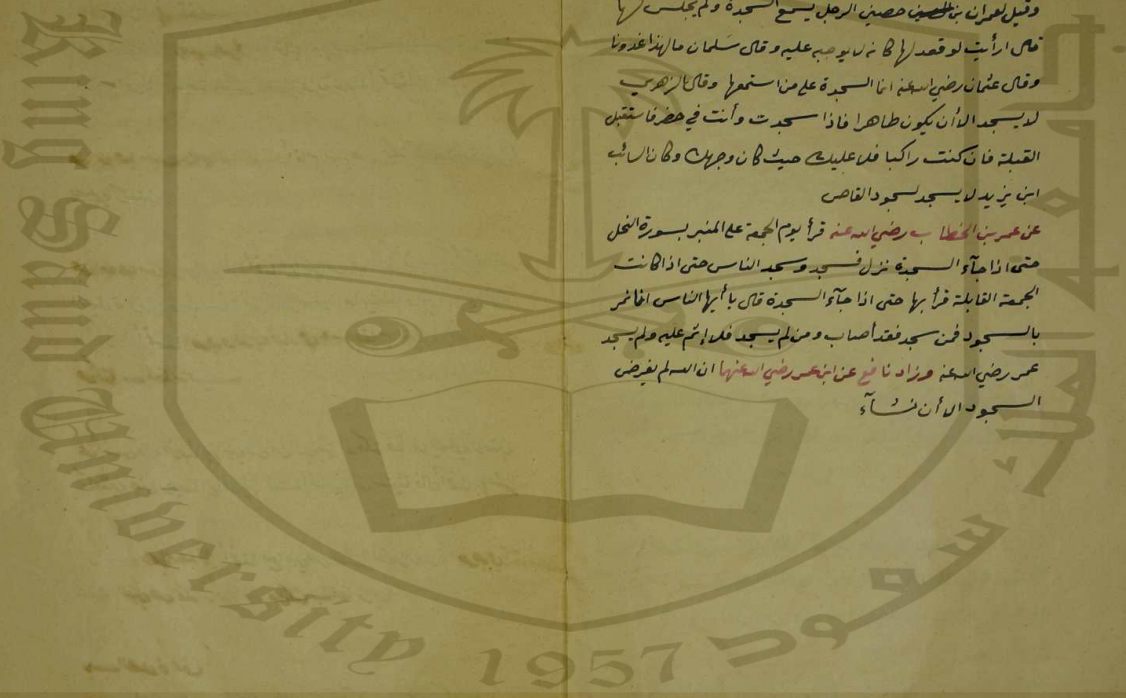 وقيل لعمران بن حصين الرجل يسمع السجدة ولم يجلس لها
قال ارأيت لو قعد لها كانه لا يوجبه عليه وقال سلمان ما لهذا غدونا
وقال عثمان رضي الله عنه انما السجدة على من استمعها وقال الزهري
لا يسجد الا أن يكون طاهرا فاذا سجدت وأنت في حضر فاستقبل
القبلة فان كنت راكبا فلا عليك حيث كان وجهك وكان السائب
ابن يزيد لا يسجد لسجود القاص
عن عمر بن الخطاب رضي الله عنه قرأ يوم الجمعة على المنبر بسورة النحل
حتى اذا جآء السجدة نزل فسجد وسجد الناس حتى اذا كانت
الجمعة القابلة قرأ بها حتى اذا جآء السجدة قال يا أيها الناس انما نمر
بالسجود فمن سجد فقد أصاب ومن لم يسجد فلا إثم عليه ولم يسجد
عمر رضي الله عنه وزاد نافع عن ابن عمر رضي الله عنهما ان الله لم يفرض
السجود الا أن نشآء
King Saud University 1957
جامعة الملك سعود